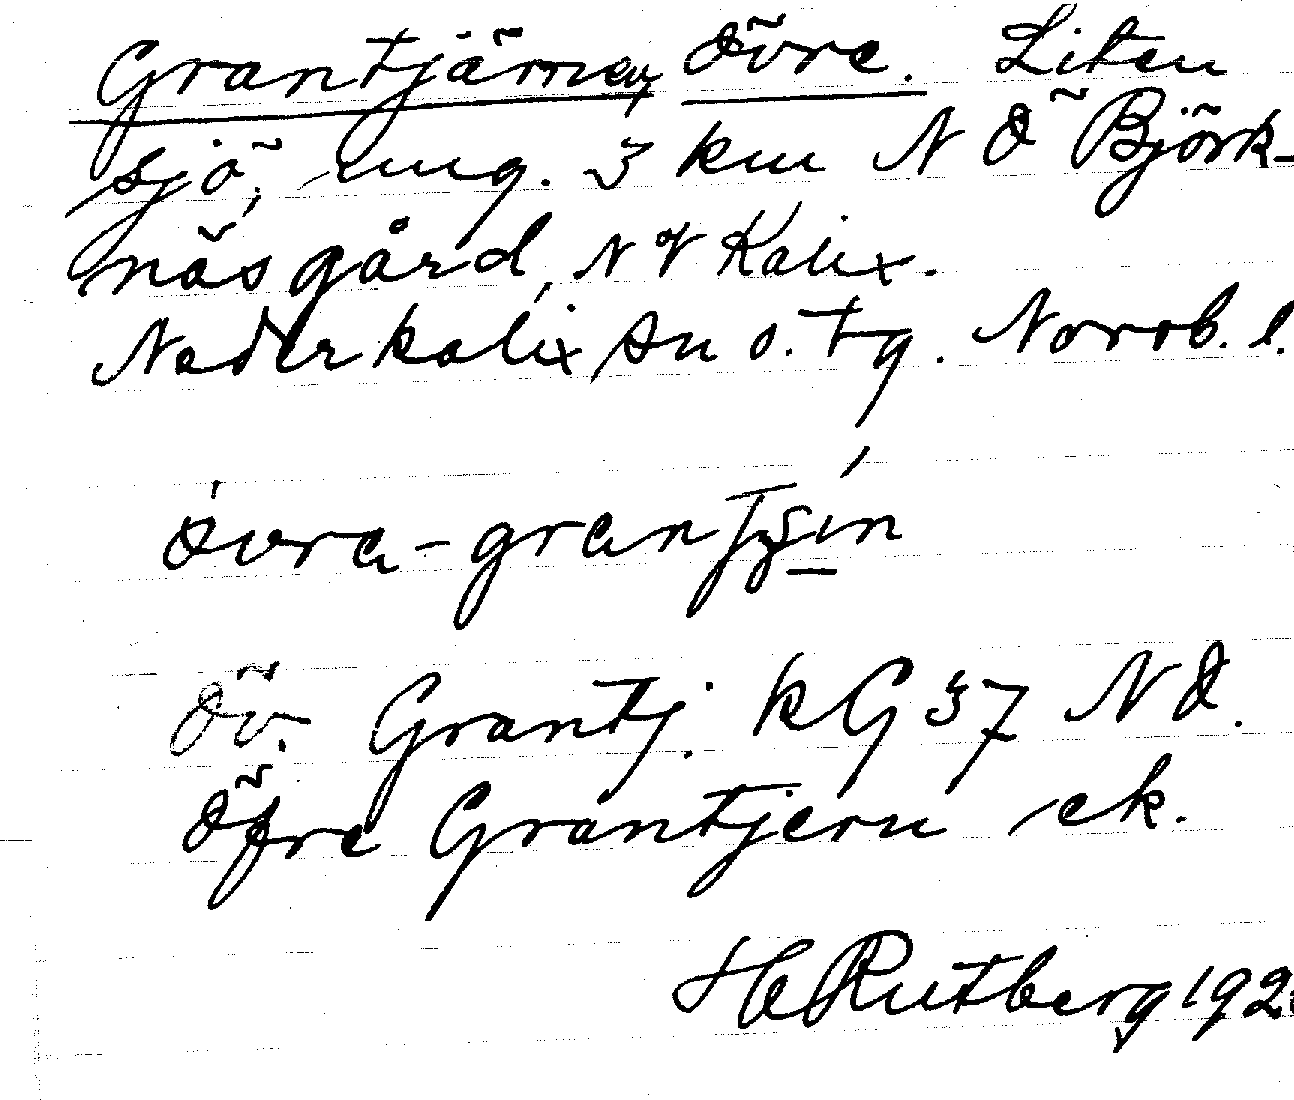 Grantjärnen, Övre. Liten
sjö, ung. 3 km N Ö Björk-
näsgård, N V Kalix.
Nederkalix sn o. tg. Norrb. l.
övra-grantjş̱ın
Öv. Grantj. kG 37 NÖ.
Öfre Grantjern ek.
H Rutberg 192